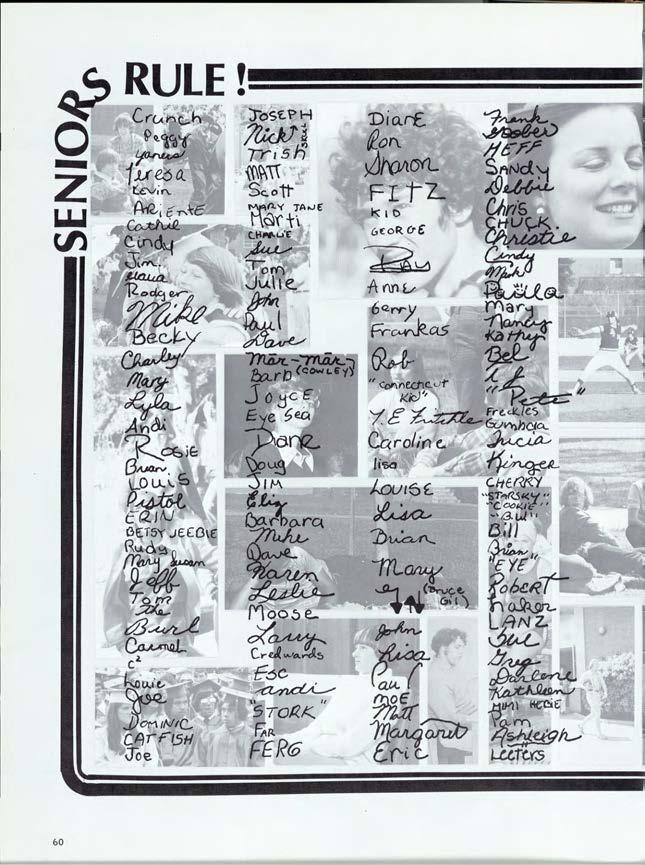 SENIORS RULE!
Crunch
Peggy
Teresa
Kevin
ARIENTE
Cathie
Cindy
Jim
Rodger
Mike
Becky
Charley
Mary
Lyla
Andi
Rosie
Brian
Louis
Pistol
ERIN
BETSY JEEBIE
Rudy
Mary Susan
Jeff
Tom
The
Burl
Carmel
C²
Louie
Joe
DOMINIC
CATFISH
Joe
JOSEPH
Nick
Trish
MATT
Scott
MARY JANE
Marti
CHARLIE
Sue
Tom
Julie
John
Paul
Dave
Mar-Mar
Barb (COWLEY)
Joyce
Eye Sea
Diane
Doug
JIM
Barbara
Mike
Dave
Karen
Leslie
Moose
Larry
Credwards
Esc
andi
"STORK"
FAR
FERG
DianE
Ron
Sharon
FITZ
KID
GEORGE
Ray
Anne
Gerry
Frankas
Rob
"Connecticut
Kid"
Caroline
lisa
LOUISE
Lisa
Brian
Mary
(Bruce
Gil)
John
Lisa
Paul
MOE
Matt
Margaret
Eric
Frank
HEFF
SANDY
Debbie
Chris
CHUCK
Christie
Cindy
Mike
Paula
Mary
Nancy
Kathy
Bel
"Pete"
Freckles
Gumbala
Tricia
Kinger
CHERRY
"STARSKY"
"COOKIE"
"B.W."
Bill
Brian
"EYE"
Robert
naker
LANZ
Sue
Greg
Darlene
Kathleen
MIMI HEBIE
Pam
Ashleigh
Leeters
60